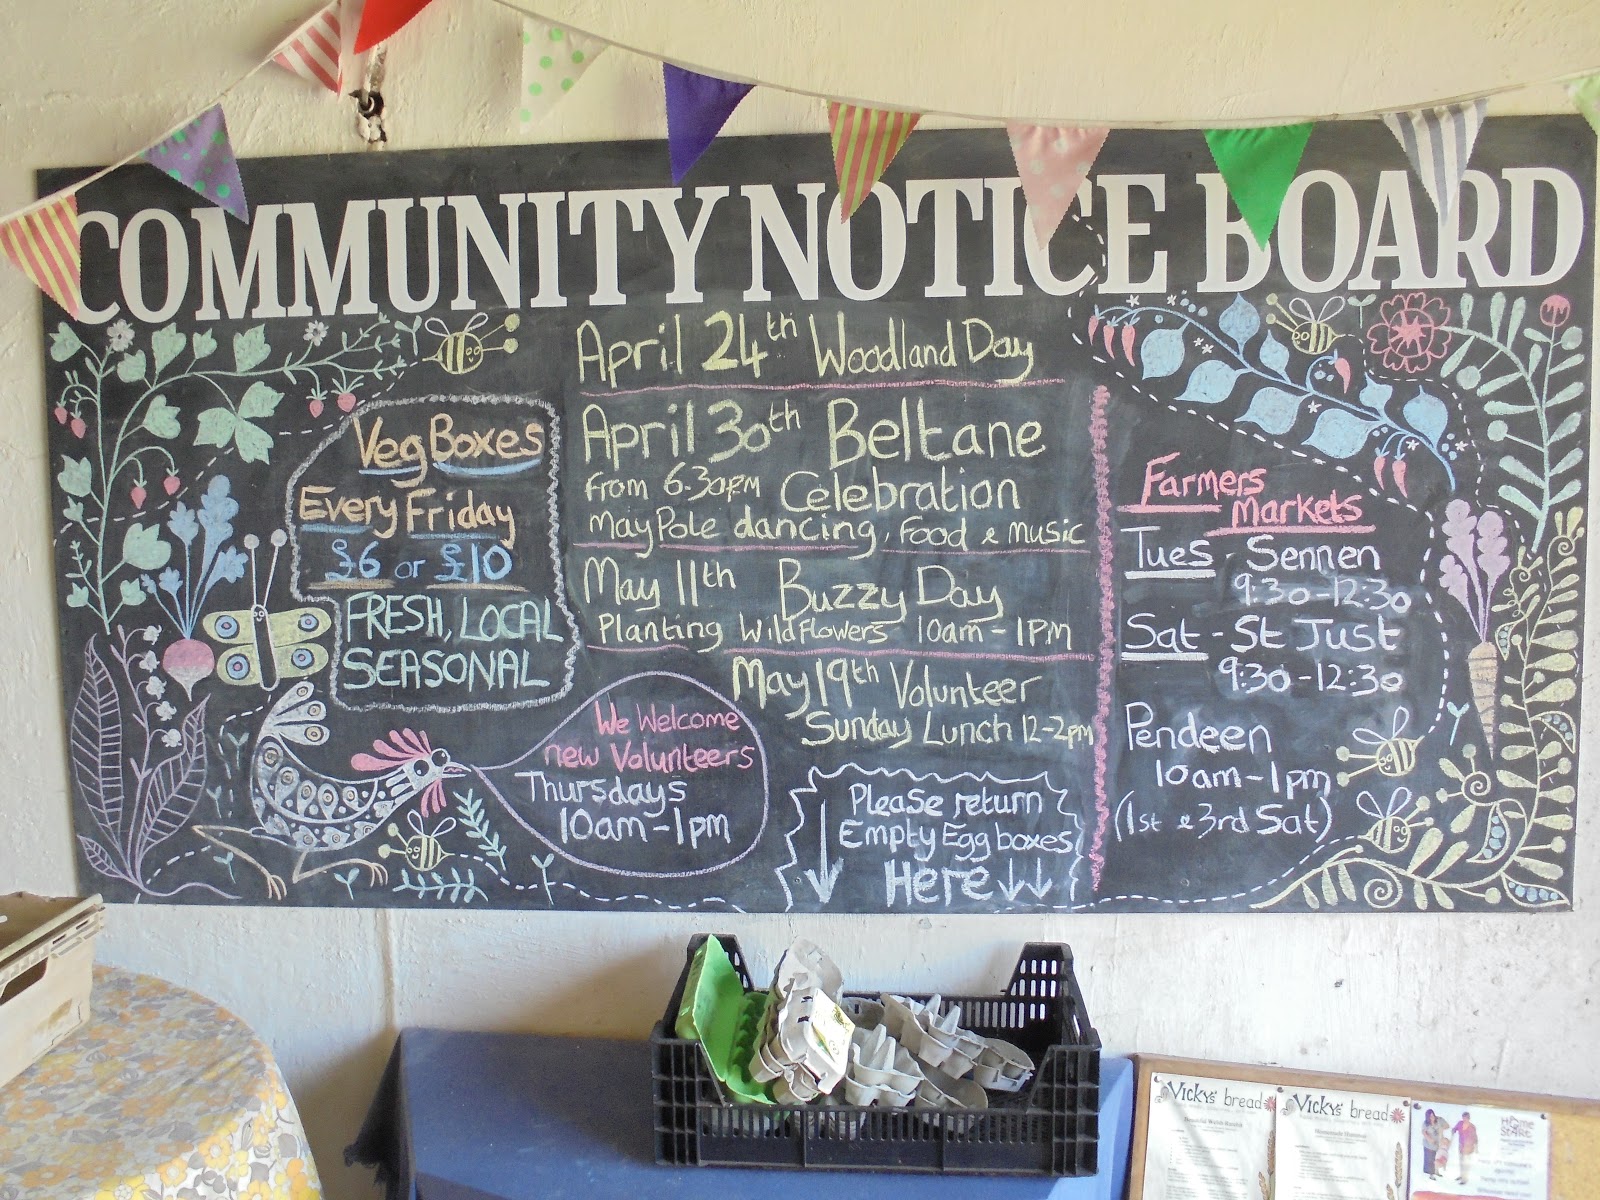 COMMUNITY NOTICE BOARD
Veg Boxes
Every Friday
£6 or £10
FRESH, LOCAL
SEASONAL
We Welcome
new Volunteers
Thursdays
10am-1pm
April 24th Woodland Day
April 30th Beltane
from 6.30pm Celebration
May Pole dancing, Food & Music
May 11th Buzzy Day
Planting Wildflowers 10am-1PM
May 19th Volunteer
Sunday Lunch 12-2pm
Please return
Empty Egg boxes
Here
Farmers
Markets
Tues - Sennen
9:30-12:30
Sat - St Just
9:30-12:30
Pendeen
10am-1pm
(1st & 3rd Sat)
Vickys' bread
Vickys' bread
HOME
START